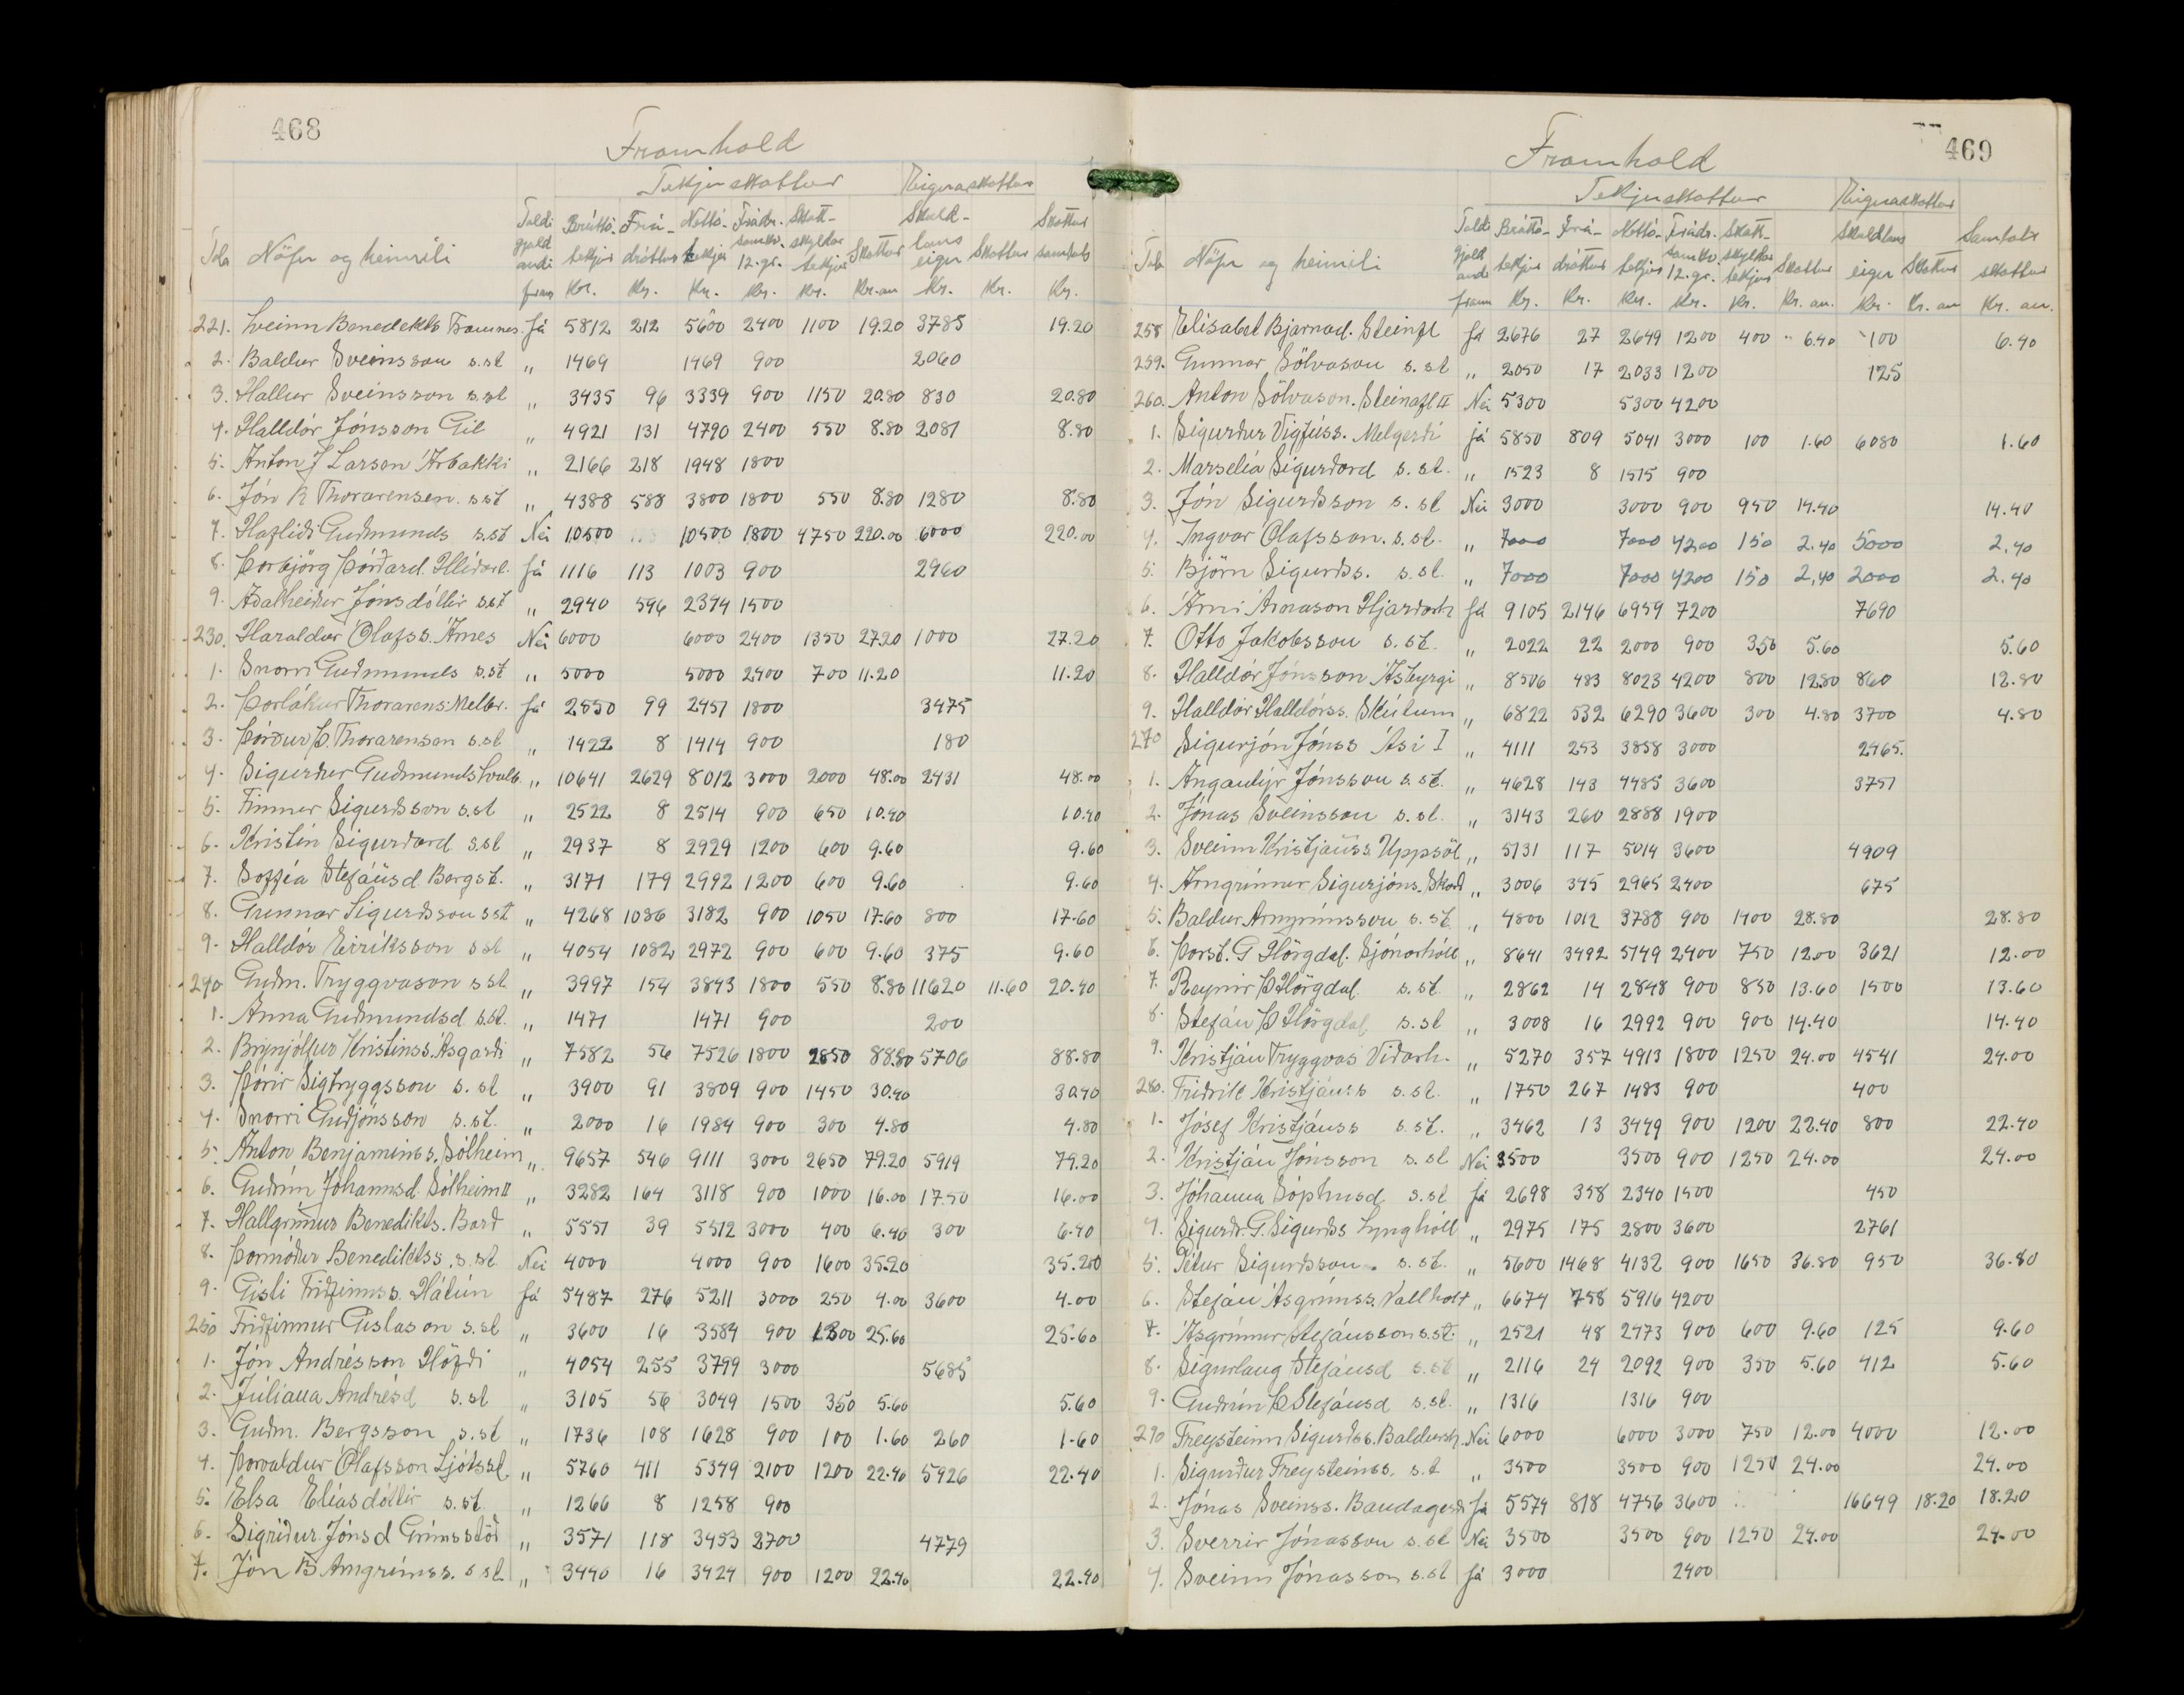 468
Framhald
Tekjuskattur Eignaskattur
Tala Nöfn og heimili Taldi gjald andi fram Brúttó- tekjur Kr. Frá- dráttur Kr. Nettó- tekjur Kr. Frádr. samkv. 12. gr. Kr. Skatt- skyldar tekjur Kr. Skattur Kr. au Skuld- laus eign Kr. Skattur Kr. Skattur samtals Kr.
221. Sveinn Benedikts Framnes. Já 5812 212 5600 2400 1100 19.20 3785 19.20
2. Baldur Sveinsson s.st „ 1469 1469 900 2060
3. Hallur Sveinsson s.st „ 3435 96 3339 900 1150 20.80 830 20.80
4. Halldór Jónsson Gil „ 4921 131 4790 2400 550 8.80 2081 8.80
5. Anton J Larsen Árbakki „ 2166 218 1948 1800
6. Jón R Thorarensen. s.st „ 4388 588 3800 1800 550 8.80 1280 8.80
7. Hafliði Guðmunds s.st Nei 10500 10500 1800 4750 220.00 6000 220.00
8. Þorbjörg Þórðard. Hlíðarl. Já 1116 113 1003 900 2960
9. Aðalheiður Jónsdóttir s.st „ 2940 546 2394 1500
230. Haraldur Ólafss. Árnes Nei 6000 6000 2400 1350 27.20 1000 27.20
1. Snorri Guðmunds s.st „ 5000 5000 2400 700 11.20 11.20
2. Þorlákur Thorarens. Melbr. Já 2550 99 2451 1800 3475
3. Þórður Þ. Thorarensen s.st „ 1422 8 1414 900 180
4. Sigurður Guðmunds „ 10641 2629 8012 3000 2000 48.00 2431 48.00
5. Finnur Sigurðsson s.st „ 2522 8 2514 900 650 10.40 10.40
6. Kristín Sigurðard s.st „ 2937 8 2929 1200 600 9.60 9.60
7. Soffía Stefánsd Bergst. „ 3171 179 2992 1200 600 9.60 9.60
8. Gunnar Sigurðsson s.st „ 4268 1086 3182 900 1050 17.60 800 17.60
9. Halldór Eiríksson s.st „ 4054 1082 2972 900 600 9.60 375 9.60
240 Guðm. Tryggvason s.st „ 3997 154 3843 1800 550 8.80 11620 11.60 20.40
1. Anna Guðmundsd s.st. „ 1471 1471 900 200
2. Brynjólfur Kristinss. Ásgarði „ 7582 56 7526 1800 2850 88.80 5706 88.80
3. Þórir Sigtryggsson s.st „ 3900 91 3809 900 1450 30.40 30.40
4. Snorri Guðjónsson s.st. „ 2000 16 1984 900 300 4.80 4.80
5. Anton Benjamínss. Sólheim „ 9657 546 9111 3000 2650 79.20 5919 79.20
6. Guðrún Jóhannsd. Sólheim II „ 3282 164 3118 900 1000 16.00 1750 16.00
7. Hallgrímur Benedikts. Barð „ 5551 39 5512 3000 400 6.40 300 6.40
8. Þormóður Benediktss. s.st. Nei 4000 4000 900 1600 35.20 35.20
9. Gísli Friðfinnss. Hátún Já 5487 276 5211 3000 250 4.00 3600 4.00
250 Friðfinnur Gíslason s.st „ 3600 16 3584 900 1300 25.60 25.60
1. Jón Andrésson Höfði „ 4054 255 3799 3000 5685
2. Júliana Andrésd s.st „ 3105 56 3049 1500 350 5.60 5.60
3. Guðm. Bergsson s.st „ 1736 108 1628 900 100 1.60 260 1.60
4. Þorvaldur Ólafsson Ljótsst. „ 5760 411 5349 2100 1200 22.40 5926 22.40
5. Elsa Elíasdóttir s.st. „ 1266 8 1258 900
6. Sigríður Jónsd Grímsstöð „ 3571 118 3453 2700 4779
7. Jón B Arngrímss. s.st „ 3440 16 3424 900 1200 22.40 22.40
469
Framhald
Tekjuskattur Eignaskattur
Tala Nöfn og heimili Taldi gjald andi fram Brúttó- tekjur Kr. Frá- dráttur Kr. Nettó- tekjur Kr. Frádr. samkv. 12. gr. Kr. Skatt- skyldar tekjur Kr. Skattur Kr. au. Skuldlaus eign Kr. Skattur Kr. au Samtals skattur Kr. au.
258 Elísabet Bjarnad. Steinfl Já 2676 27 2649 1200 400 6.40 100 6.40
259. Gunnar Sölvason s.st „ 2050 17 2033 1200 125
260. Anton Sölvason. Steinafl II Nei 5300 5300 4200
1. Sigurður Vigfúss. Melgerði já 5850 809 5041 3000 100 1.60 6080 1.60
2. Marselía Sigurðard s.st. „ 1523 8 1515 900
3. Jón Sigurðsson s.st Nei 3000 3000 900 950 14.40 14.40
4. Ingvar Ólafsson. s.st. „ 7000 7000 4200 150 2.40 5000 2.40
5. Björn Sigurðs. s.st. „ 7000 7000 4200 150 2.40 2000 2.40
6. Árni Árnason Hjarðarh Já 9105 2146 6959 7200 7690
7. Otto Jakobsson s.st. „ 2022 22 2000 900 350 5.60 5.60
8. Halldór Jónsson Ásbyrgi „ 8506 483 8023 4200 800 12.80 860 12.80
9. Halldór Halldórss. Skútum „ 6822 532 6290 3600 300 4.80 3700 4.80
270 Sigurjón Jónss Ási I „ 4111 253 3858 3000 2465.
1. Angantýr Jónsson s.st. „ 4628 143 4485 3600 3751
2. Jónas Sveinsson s.st. „ 3143 260 2888 1900
3. Sveinn Kristjánss. Uppsöl „ 5131 117 5014 3600 4909
4. Arngrímur Sigurjóns. „ 3006 345 2965 2400 675
5. Baldur Arngrímsson s.st. „ 4800 1012 3788 900 1400 28.80 28.80
6. Þorst. G Hörgdal. Sjónarhóll „ 8641 3492 5149 2400 750 12.00 3621 12.00
7. Reynir Þ Hörgdal s.st. „ 2862 14 2848 900 850 13.60 1500 13.60
8. Stefán Þ Hörgdal s.st „ 3008 16 2992 900 900 14.40 14.40
9. Kristján Tryggvas Viðarh. „ 5270 357 4913 1800 1250 24.00 4541 24.00
280. Friðrik Kristjánss s.st. „ 1750 267 1483 900 400
1. Jósef Kristjánss s.st. „ 3462 13 3449 900 1200 22.40 800 22.40
2. Kristján Jónsson s.st Nei 3500 3500 900 1250 24.00 24.00
3. Jóhanna Sóphusd s.st Já 2698 358 2340 1500 450
4. Sigurð. G. Sigurðs Lynghóll „ 2975 175 2800 3600 2761
5. Pétur Sigurðsson. s.st. „ 5600 1468 4132 900 1650 36.80 950 36.80
6. Stefán Ásgrímss. Vallholt „ 6674 758 5916 4200
7. Ásgrímur Stefánsson s.st. „ 2521 48 2473 900 600 9.60 125 9.60
8. Sigurlaug Stefánsd s.st „ 2116 24 2092 900 350 5.60 412 5.60
9. Guðrún Þ Stefánsd s.st. „ 1316 1316 900
290 Freysteinn Sigurðss. Baldursh. Nei 6000 6000 3000 750 12.00 4000 12.00
1. Sigurður Freysteinss. s.t „ 3500 3500 900 1250 24.00 24.00
2. Jónas Sveinss. Bandagerði Já 5574 818 4756 3600 16649 18.20 18.20
3. Sverrir Jónasson s.st Nei 3500 3500 900 1250 24.00 24.00
4. Sveinn Jónasson s.st Já 3000 2400